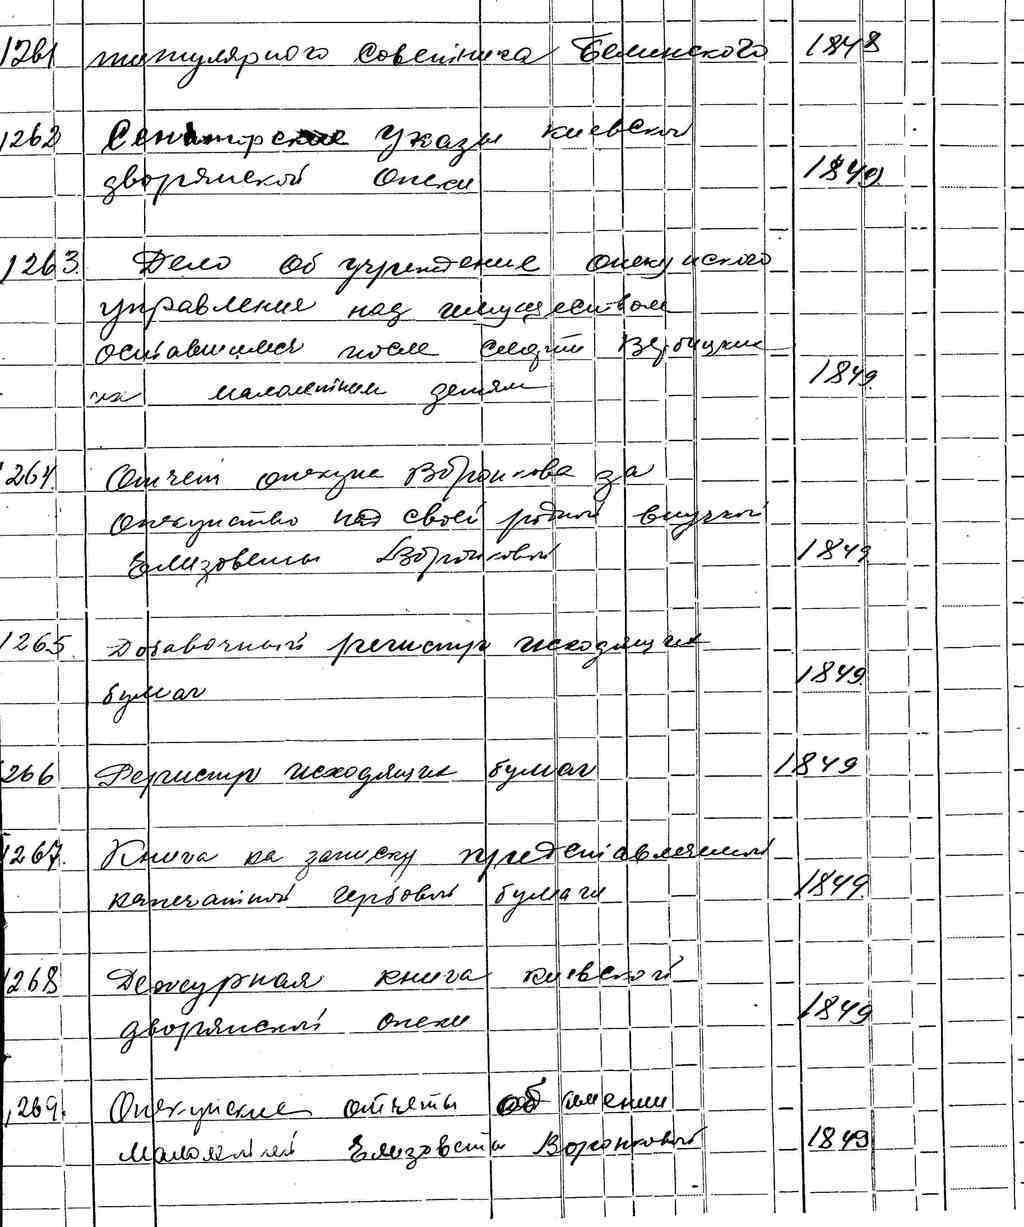 1261 титулярного советника Белинского 1848
1262 Сенаторские указы киевской
дворянской опеки 1849
1263. Дело об учреждение опекунского
управления над имуществом
оставшимся после смерти Вербицких
их малолетним детям 1849.
1264. Отчет опекуна Воронкова за
опекунство над своей родной внучкой
Елизоветы Воронковой 1849
1265. Добавочный регистр исходящих
бумаг 1849.
1266 Регистр исходящих бумаг 1849
1267. Книга на записку представляемой
гербовой бумаги 1849.
1268 Дежурная книга киевской
дворянской опеки 1849
1269. Опекунские отчеты об имении
малолетней Елизоветы Воронковой 1849